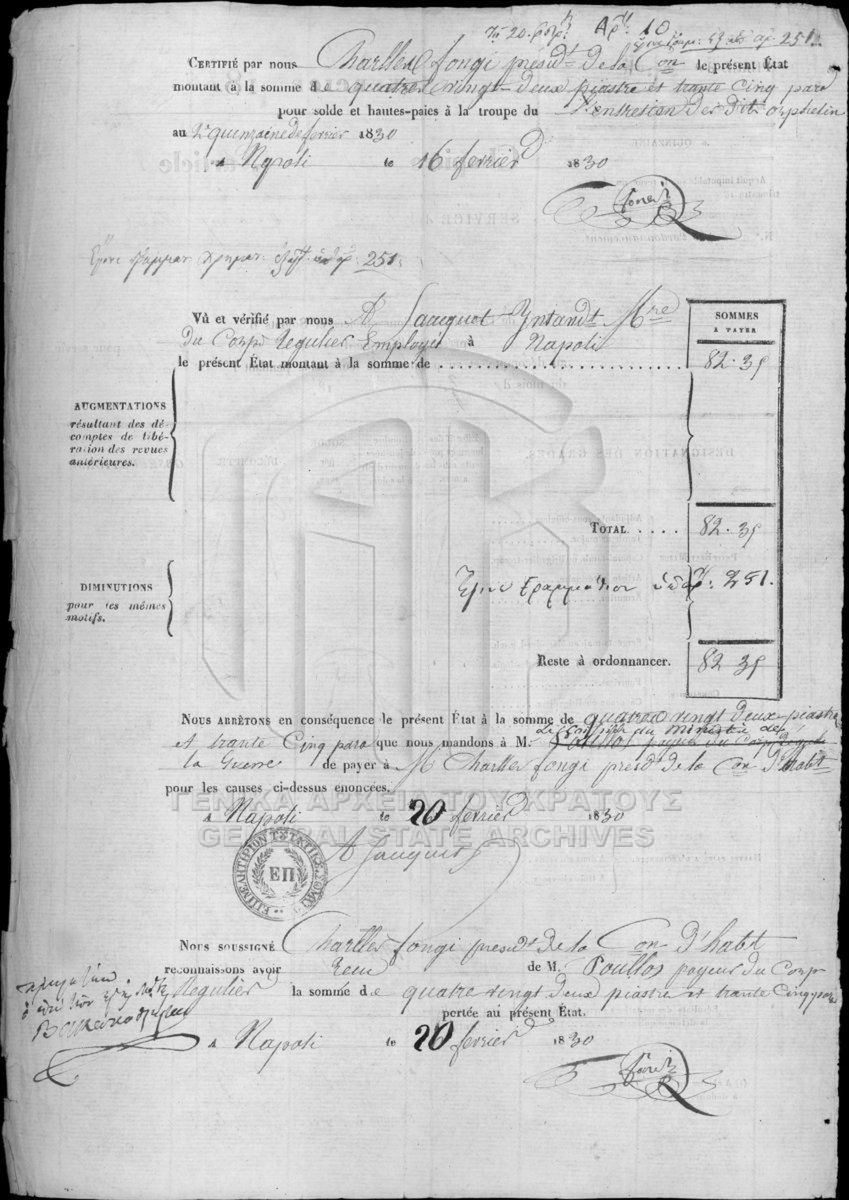 Αρ. 10
251
CERTIFIÉ par nous Charlles fongi présidt de la Con le présent État
montant à la somme de quatre vingt-deux piastre et trante Cinq para
pour solde et hautes-paies à la troupe du L'entretien des dits orphelin
au 2e quinzaine de fevrier 1830
A Napoli le 16 fevrier 1830
251
Vû et vérifié par nous A Jacquot Yntandt Mre
Du Corps Regulier Employer à Napoli
le présent État montant à la somme de
SOMMES
A PAYER
82.35
AUGMENTATIONS
résultant des dé-
comptes de libé-
ration des revues
antérieures.
TOTAL 82.35
DIMINUTIONS
pour les mêmes
motifs.
251.
Reste à ordonnancer. 82 35
NOUS ARRÊTONS en conséquence le présent État à la somme de quatre vingt Deux piastre
et trante Cinq para que nous mandons à M.
la Guerre de payer à Mr Charlles fongi presdt de la Con D'habt
pour les causes ci-dessus enoncées.
ΓΕΝΙΚΑ ΑΡΧΕΙΑ ΤΟΥ ΚΡΑΤΟΥΣ
A Napoli le 20 fevrier 1830
GENERAL STATE ARCHIVES
A Jacquot
ΕΠ
NOUS SOUSSIGNÉ Charlles fongi presidt de la Con D'habt
reconnaissons avoir Reçu de M. Poullos payeur du Corps
Regulier la somme de quatre vingt deux piastre et trante Cinq para
pertée au présent État.
A Napoli le 20 fevrier 1830